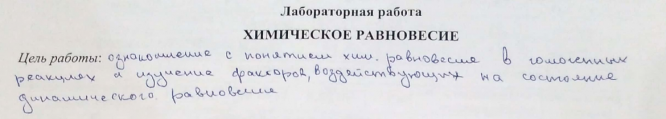 Лабораторная работа
ХИМИЧЕСКОЕ РАВНОВЕСИЕ
Цель работы: ознакомление с понятием хим. равновесие в гомогенных
реакциях и изучение факторов, воздействующих на состояние
динамического равновесия